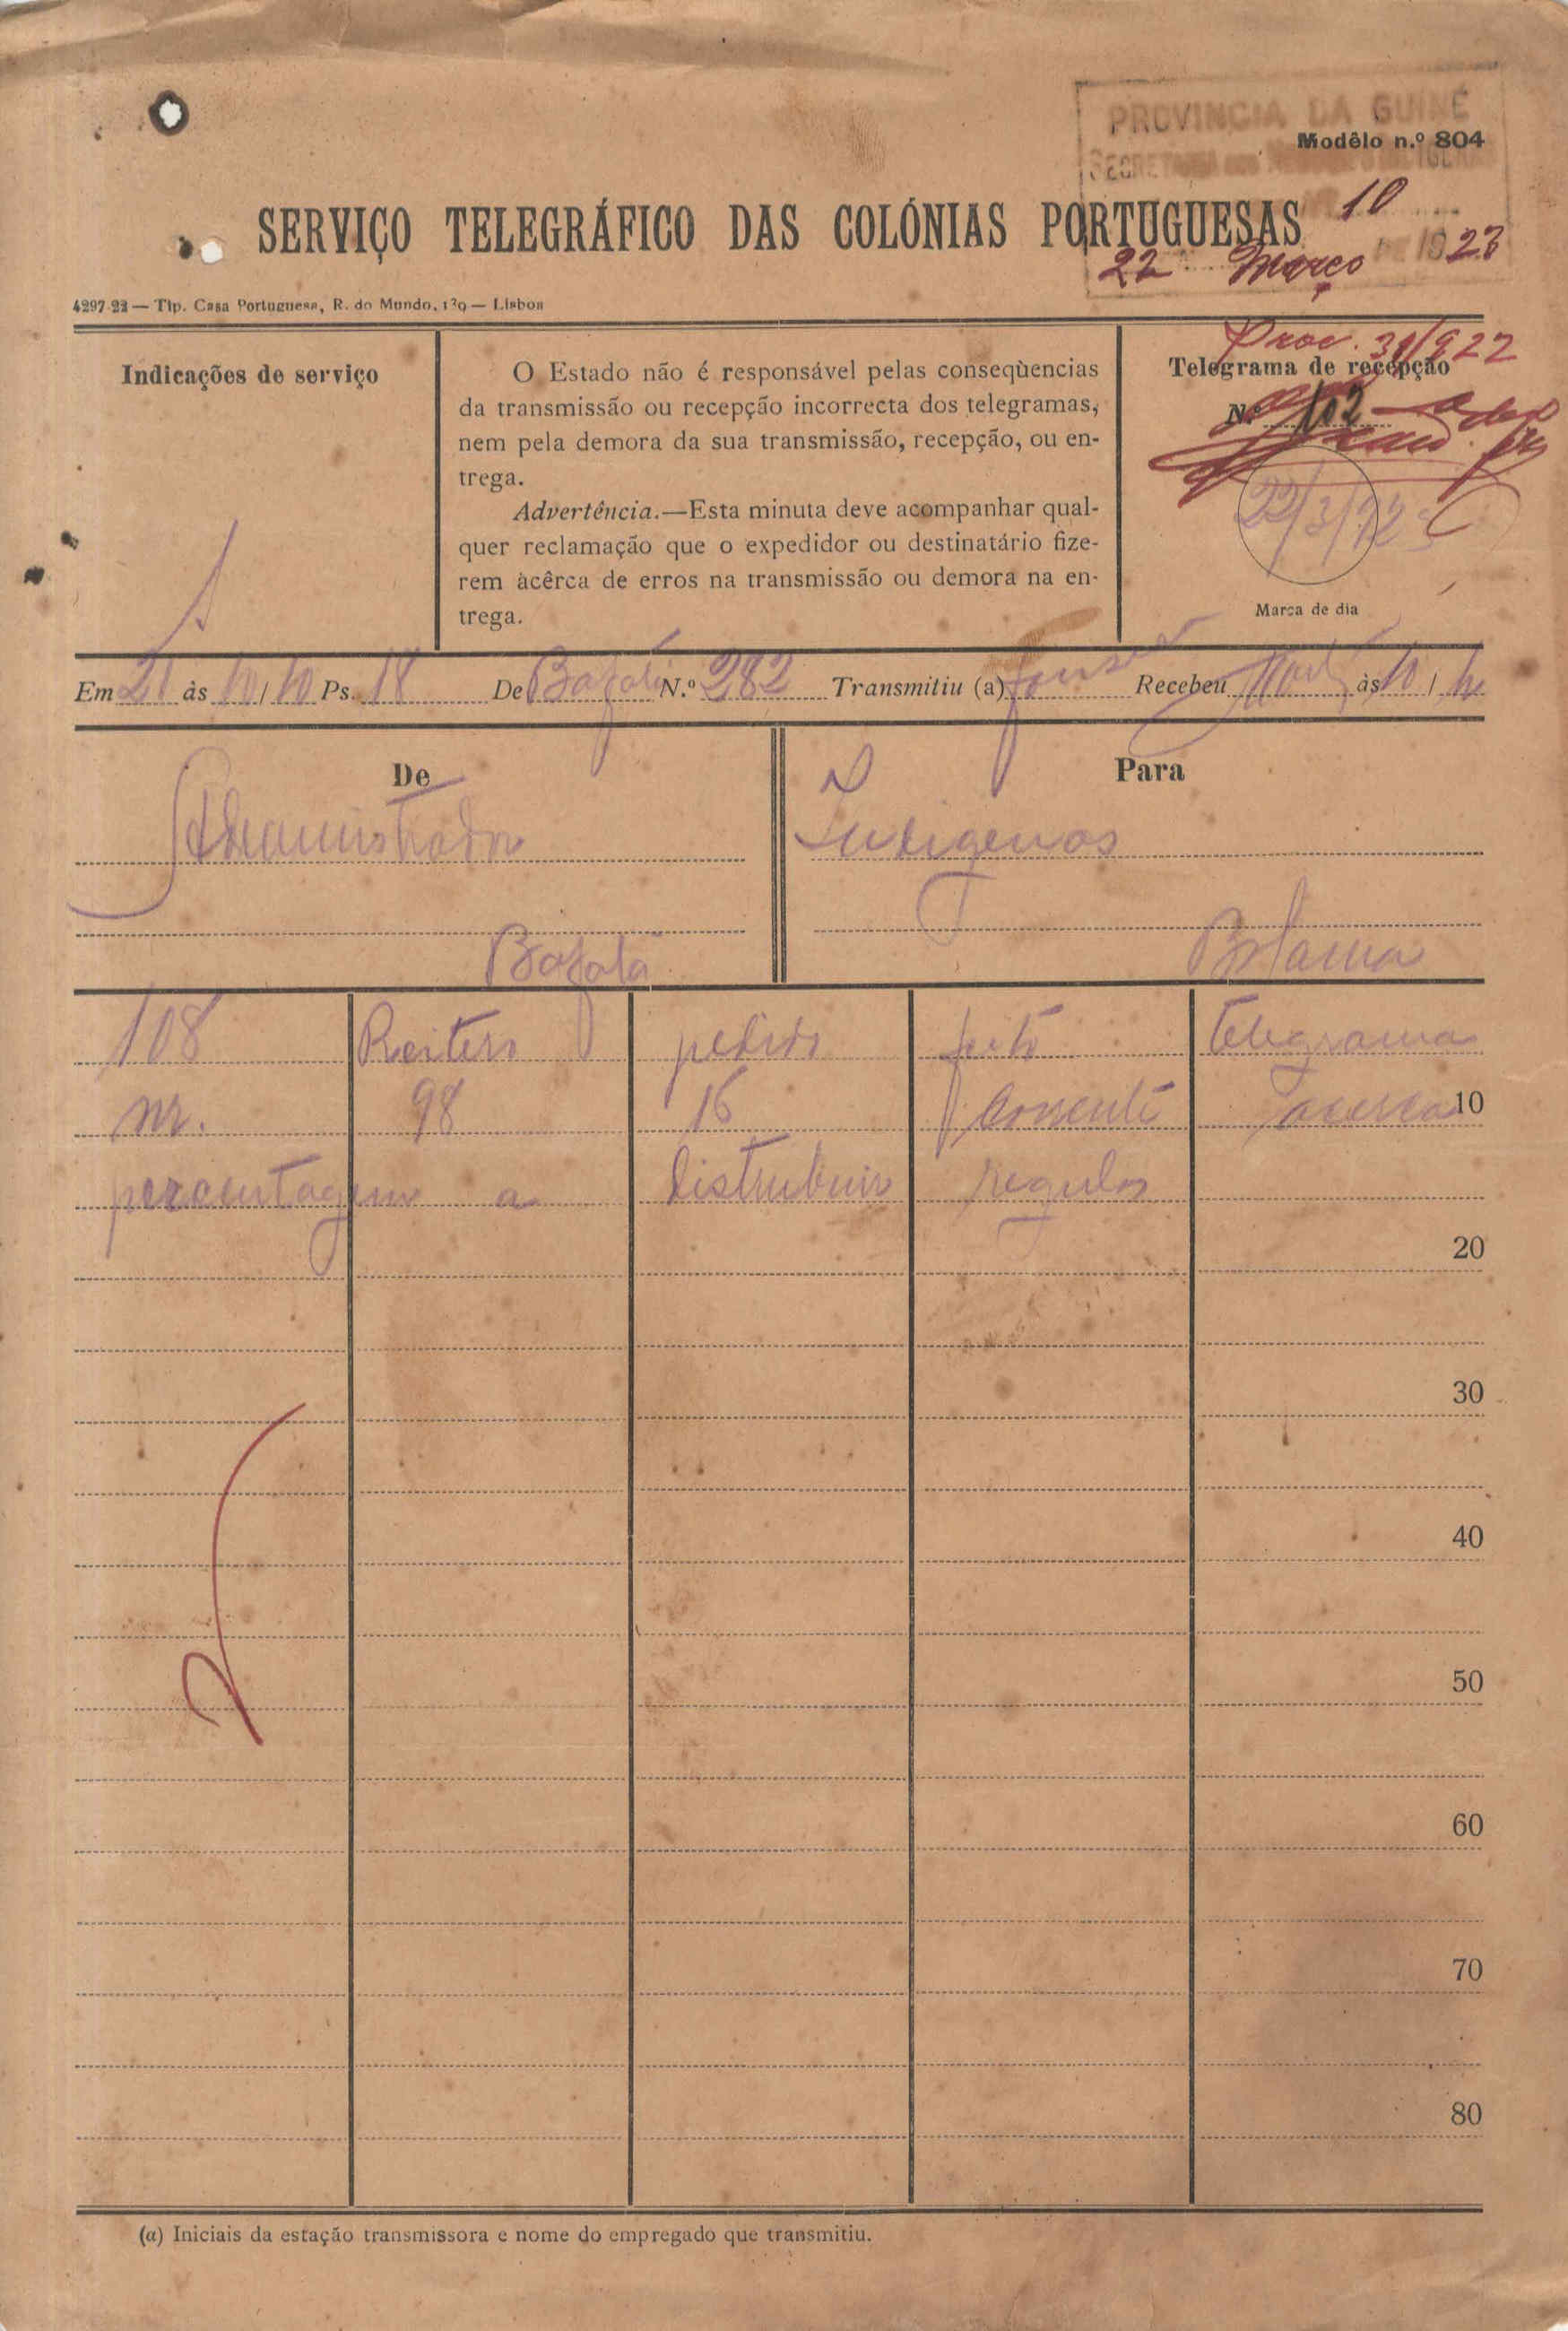 PROVINCIA DA GUINÉ
Modêlo n.º 804
10
SERVIÇO TELEGRÁFICO DAS COLÓNIAS PORTUGUESAS
22 Março 1923
4297-22 — Tip. Casa Portuguesa, R. do Mundo, 139 — Lisboa
Indicações de serviço
S
O Estado não é responsável pelas conseqùencias
da transmissão ou recepção incorrecta dos telegramas,
nem pela demora da sua transmissão, recepção, ou en-
trega.
Advertência.—Esta minuta deve acompanhar qual-
quer reclamação que o expedidor ou destinatário fize-
rem àcêrca de erros na transmissão ou demora na en-
trega.
Proc. 31/922
Telegrama de recepção
N.º 102
22/3/923
Marca de dia
Em 21 às 10/10 Ps. 18 De Bafatá N.º 282 Transmitiu (a) Recebeu às 10/
De
Administrador
Bafatá
Para
S
Indigenas
Bolama
108 Reitero pedido feito telegrama
nr. 98 16 corrente acerca 10
percentagem a distribuir regulos
20
30
40
50
60
70
80
(a) Iniciais da estação transmissora e nome do empregado que transmitiu.